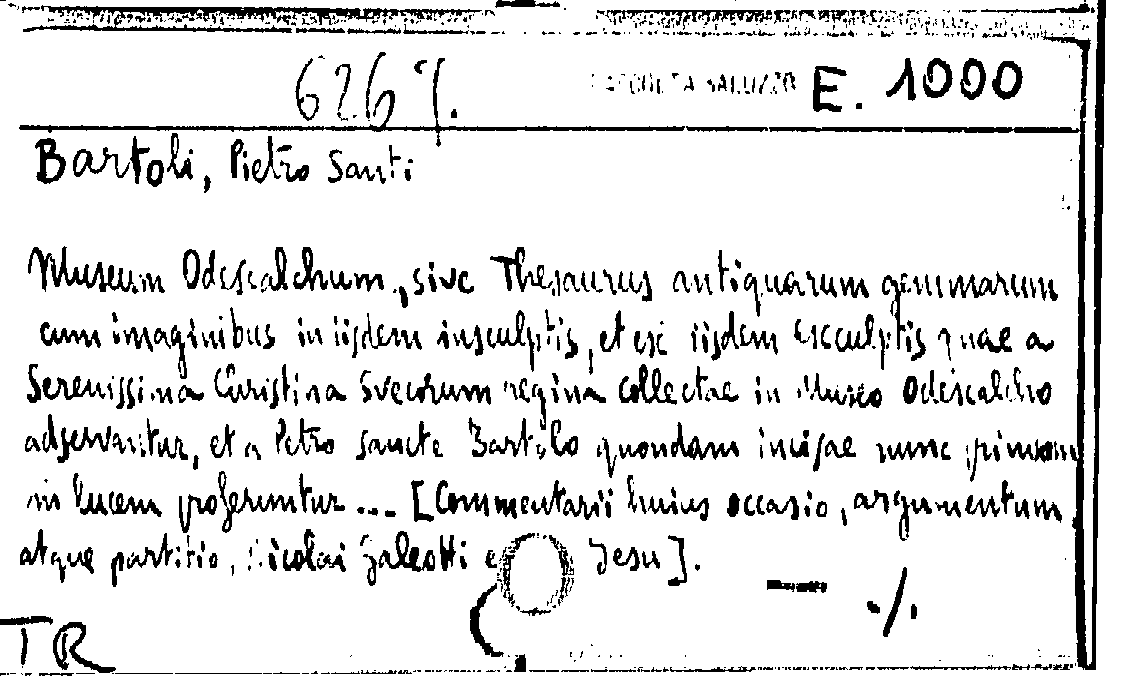 626 %. RACCOLTA SALUZZO E. 1000
Bartoli, Pietro Santi
Museum Odescalchum, sive Thesaurus antiquarum gemmarum
cum imaginibus in iisdem insculptis, et ex iisdem exculptis quae a
Serenissima Christina Svecorum regina collectae in Museo Odescalcho
adservantur, et a Petro Sancte Bartolo quondam incisae nunc primum
in lucem proferuntur ... [Commentarii huius occasio, argumentum
atque partitio, Nicolai Galeotti e Jesu].
— ./.
TR